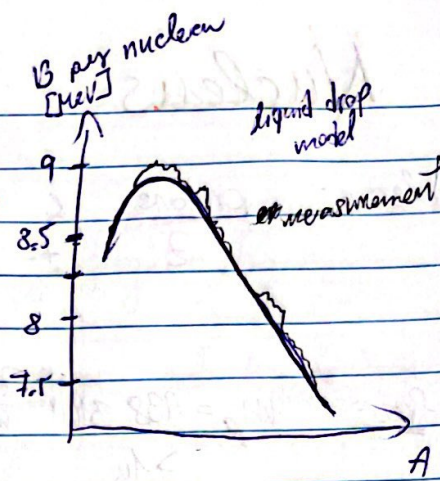 B per nucleon
[MeV]
liquid drop
model
9
measurement
8.5
8
7.5
A